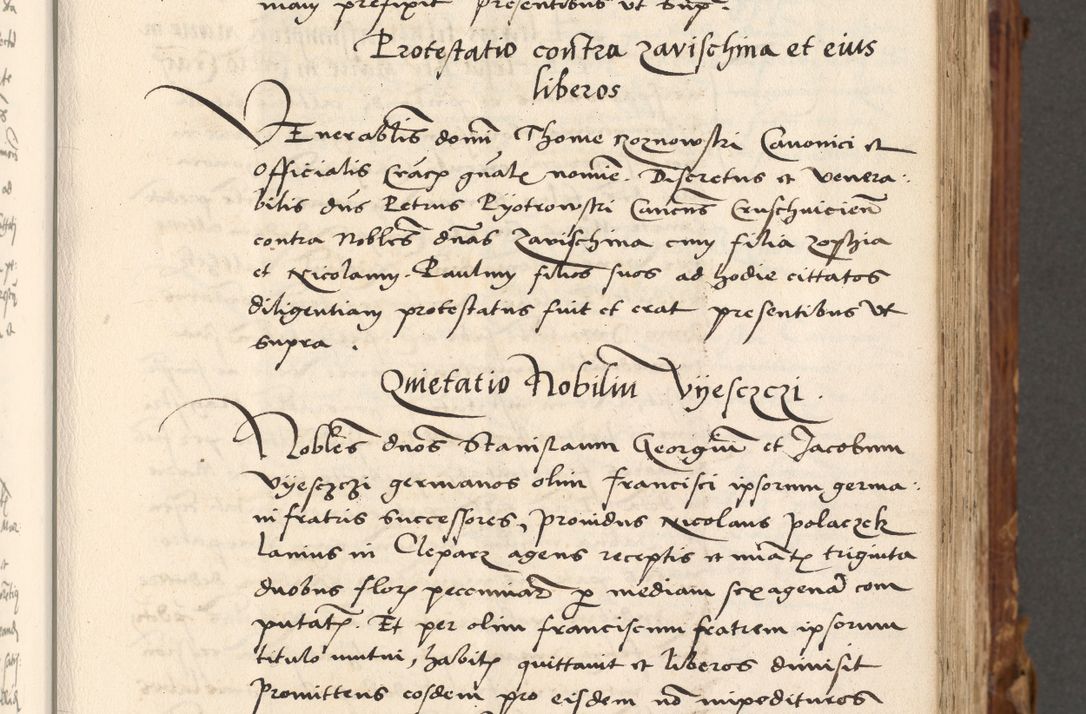 mam prefixit presentibus ut sup:
Protestatio contra zavischma et eius
liberos
Venerablis domi Thome roznowski Canonici et
Officialis Crac gnalis nomie. Discretus et venera:
bilis dns Petrus Pyotrowski Cancns Cruschvicien
contra Nobles dnas Zavischina cum filia zophia
et Nicolaum Paulum filios suos ad hodie cittatos
diligentiam protestatus fuit et erat presentibus ut
supra .
Quietatio Nobiliu Vyesczczi .
Nobles dnos Stanislaum Georgium et Jacobum
Vyesczczi germanos olim francisci ipsorum germa:
ni fratris successores, providus Nicolaus polaczek
lanius in Clepars agens receptis et triginta
duobus flor pecuniar p mediam sexagena com
putat. Et per olim franciscum fratrem ipsorum
titulo mutui, habit quittavit et liberos dimisit
Promittens eosdem pro eisdem no impedituros